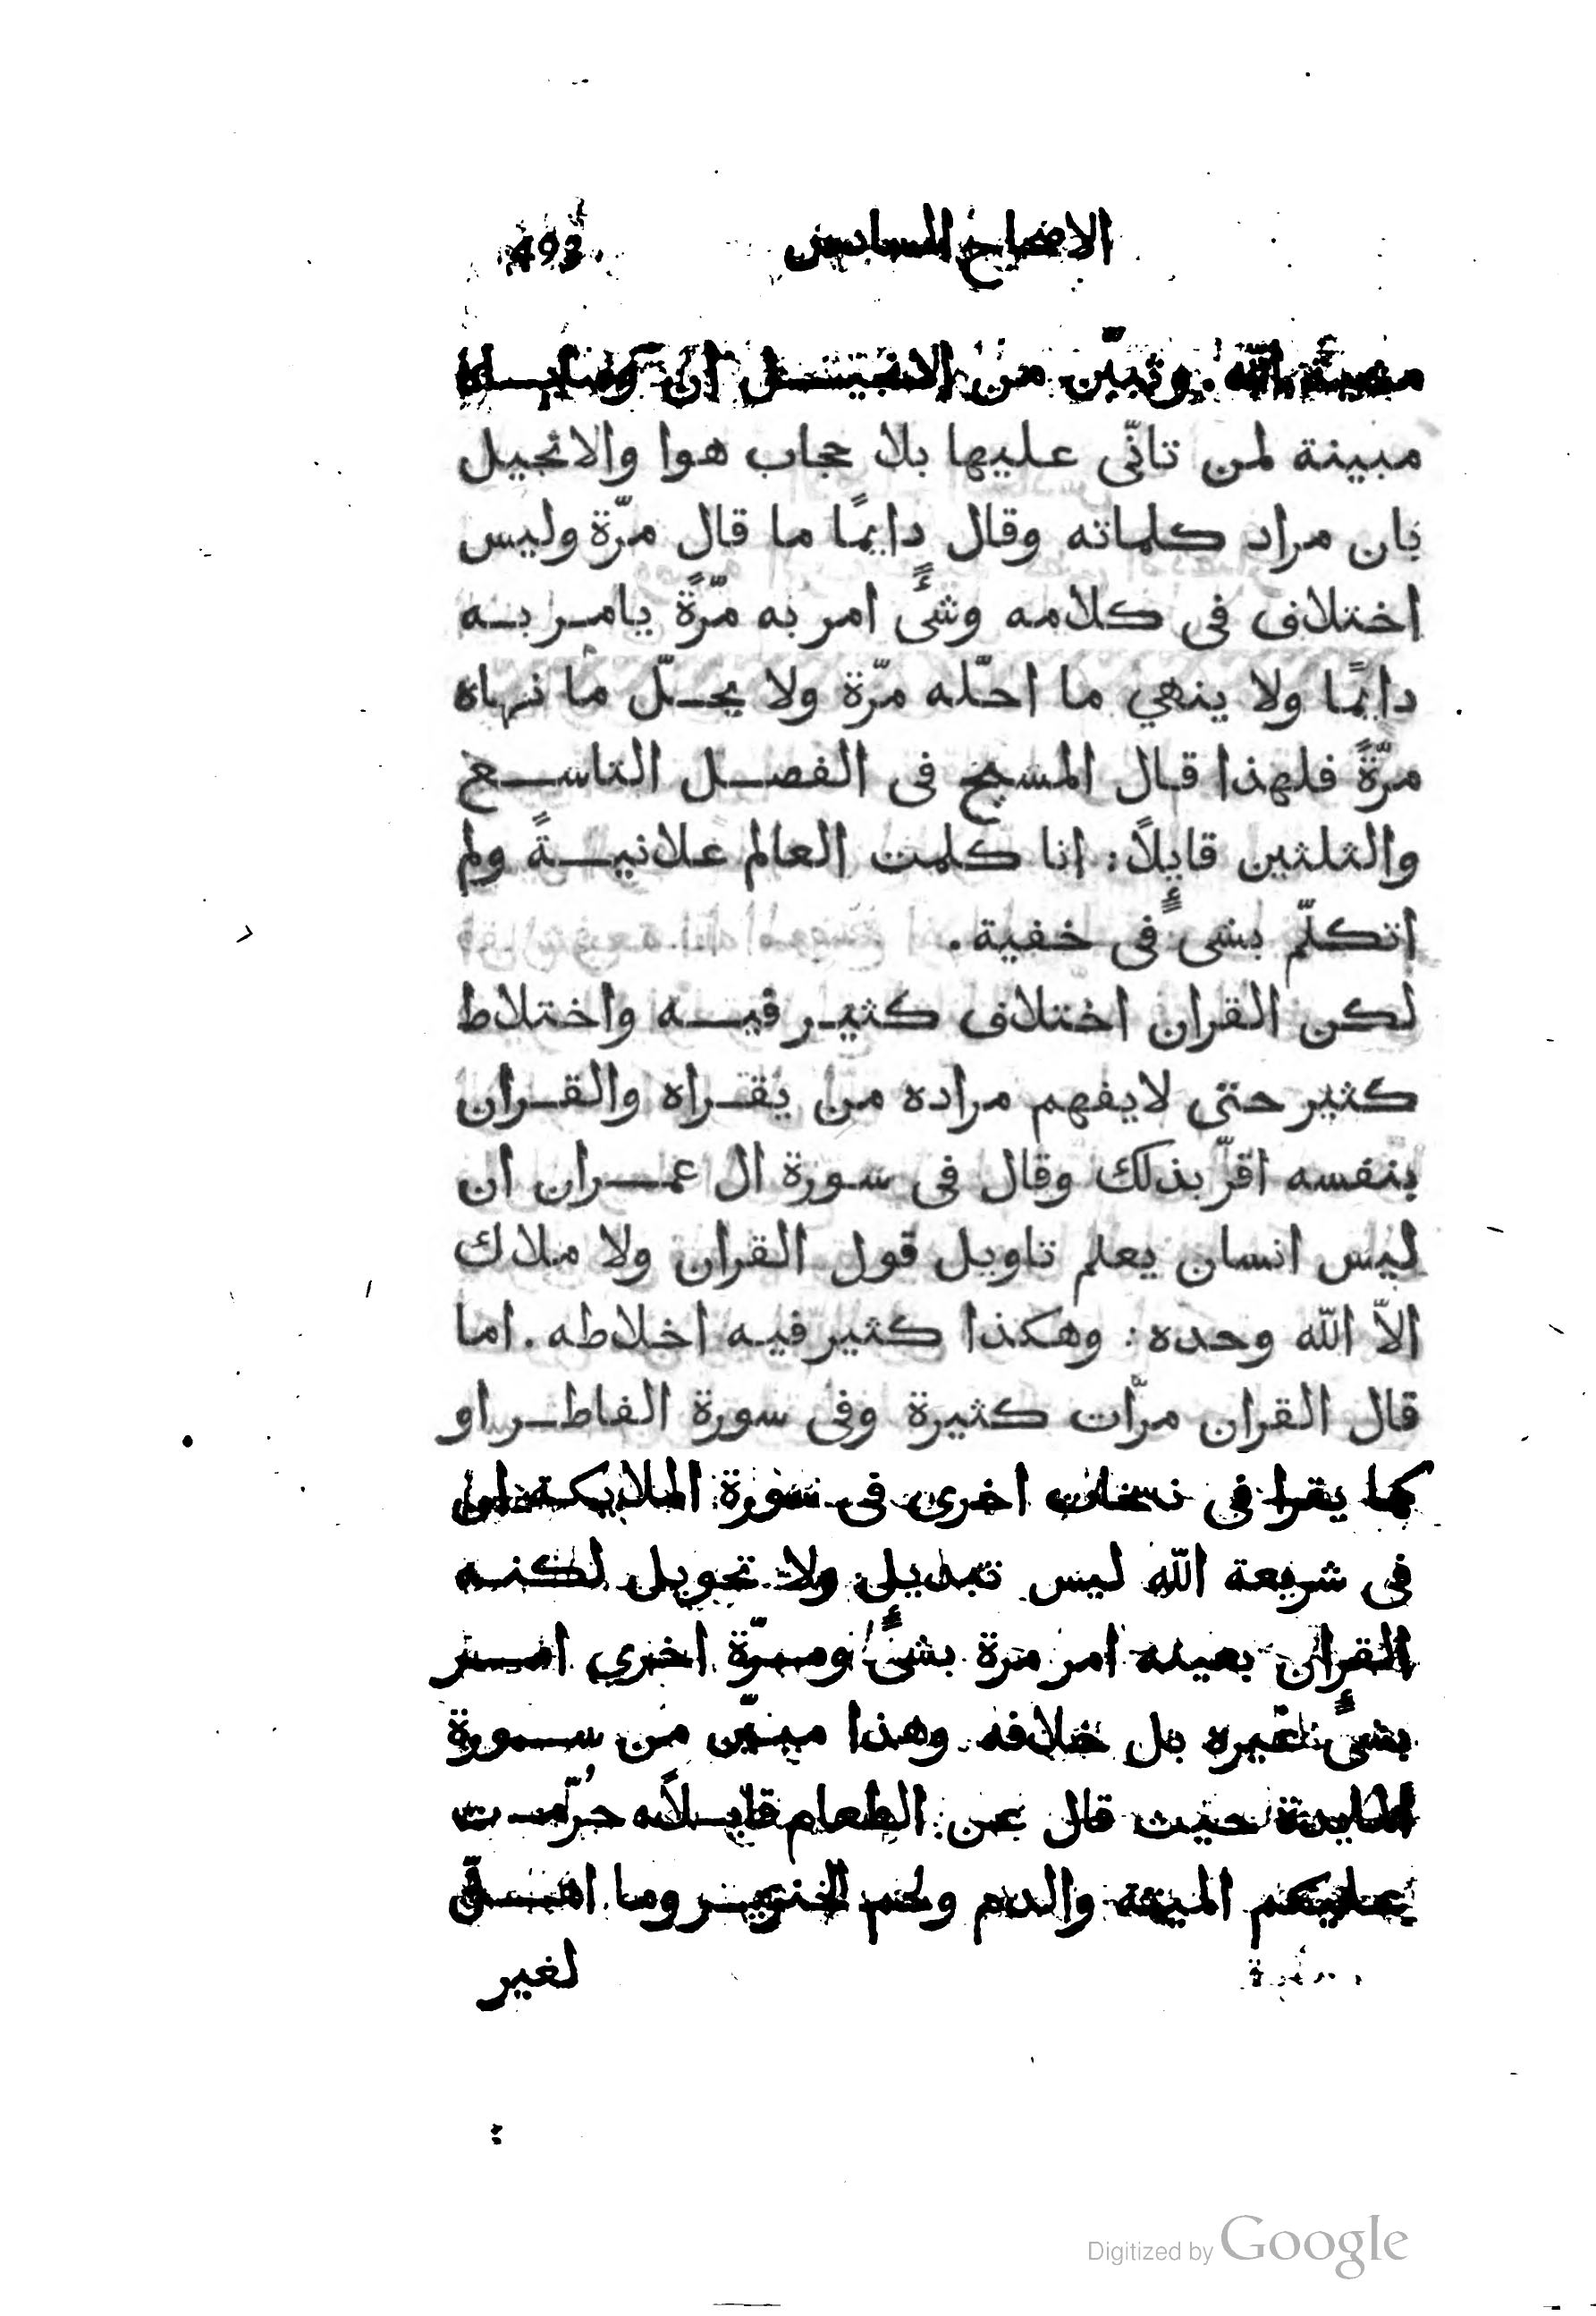 الاصحاح السادس 493
الله. وتبيّن من الانجيل ان وصاياه
مبينة لمن تانّى عليها بلا حجاب هوا والانجيل
بان مراد كلماته وقال دايمًا ما قال مرّة وليس
اختلاف فى كلامه وشىءً امر به مرّةً يامر به
دايمًا ولا ينهي ما احلّه مرّة ولا يحلّ ما نهاه
مرّةً فلهذا قال المسيح فى الفصل التاسع
والثلثين قايلاً: انا كلمت العالم علانيةً ولم
اتكلّم بشىءٍ فى خفية.
لكن القران اختلاف كثير فيه واختلاط
كثير حتى لايفهم مراده من يقراه والقران
بنفسه اقرّ بذلك وقال فى سورة ال عمران ان
ليس انسان يعلم تاويل قول القران ولا ملاك
الاّ اللّه وحده: وهكذا كثير فيه اخلاطه. اما
قال القران مرّات كثيرة وفى سورة الفاطر او
كما يقرا فى نسخات اخرى فى سورة الملايكة ان
فى شريعة اللّه ليس تبديل ولا تحويل لكنه
القران بعينه امر مرة بشىءً ومرّة اخري امر
بشىءً غيره بل خلافه وهذا مبيّن من سورة
المايدة حيث قال عن الطعام قايلاً حُرّمت
عليكم الميتة والدم ولحم الخنزير وما اهلّ
لغير
Digitized by Google